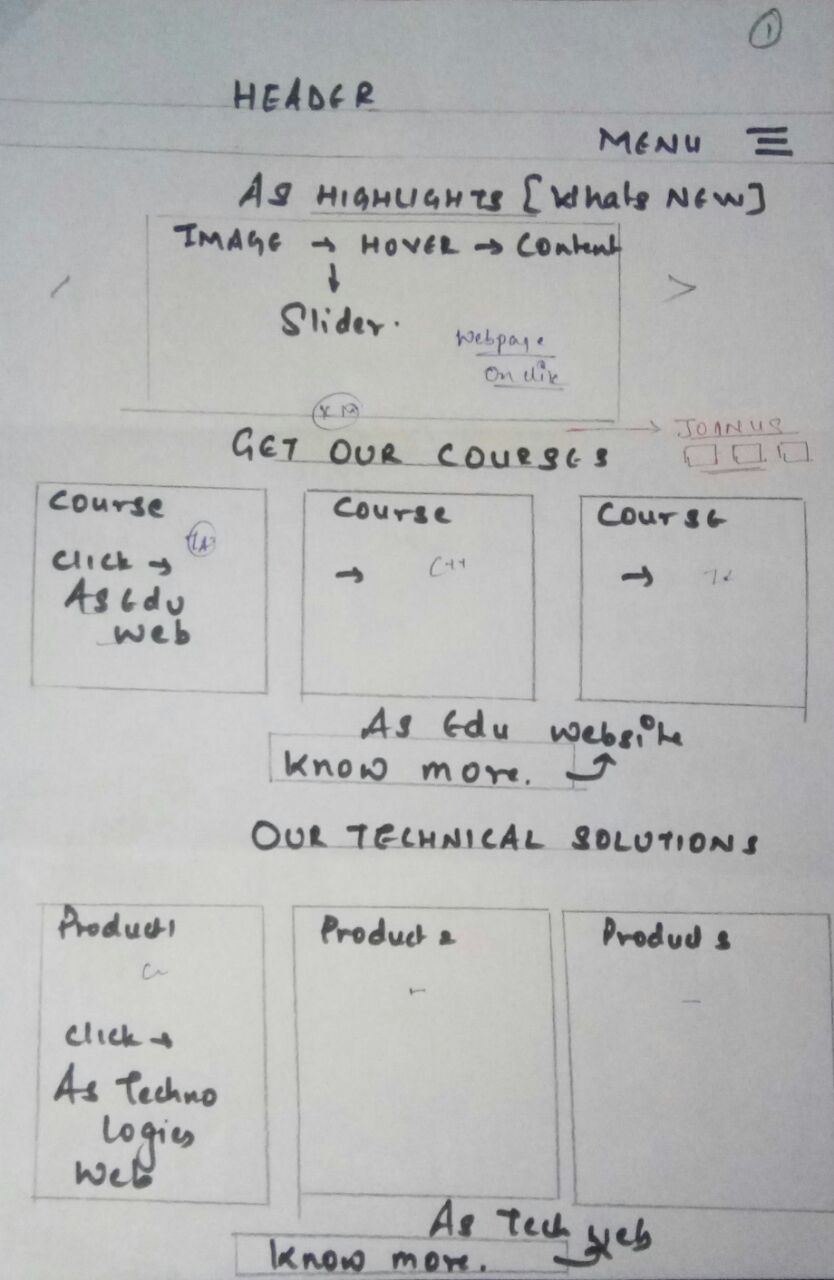 1
HEADER
MENU
AS HIGHLIGHTS [Whats NEW]
IMAGE → HOVER → Content
↓
Slider.
Webpage
On clik
>
JOIN US
GET OUR COURSES
Course
Click →
AS Edu
Web
Course
→ C++
Course
→
AS Edu Website
Know more.
OUR TECHNICAL SOLUTIONS
Product 1
Click →
As Techno
logies
Web
Product 2
Product 3
As Tech Web
Know more.